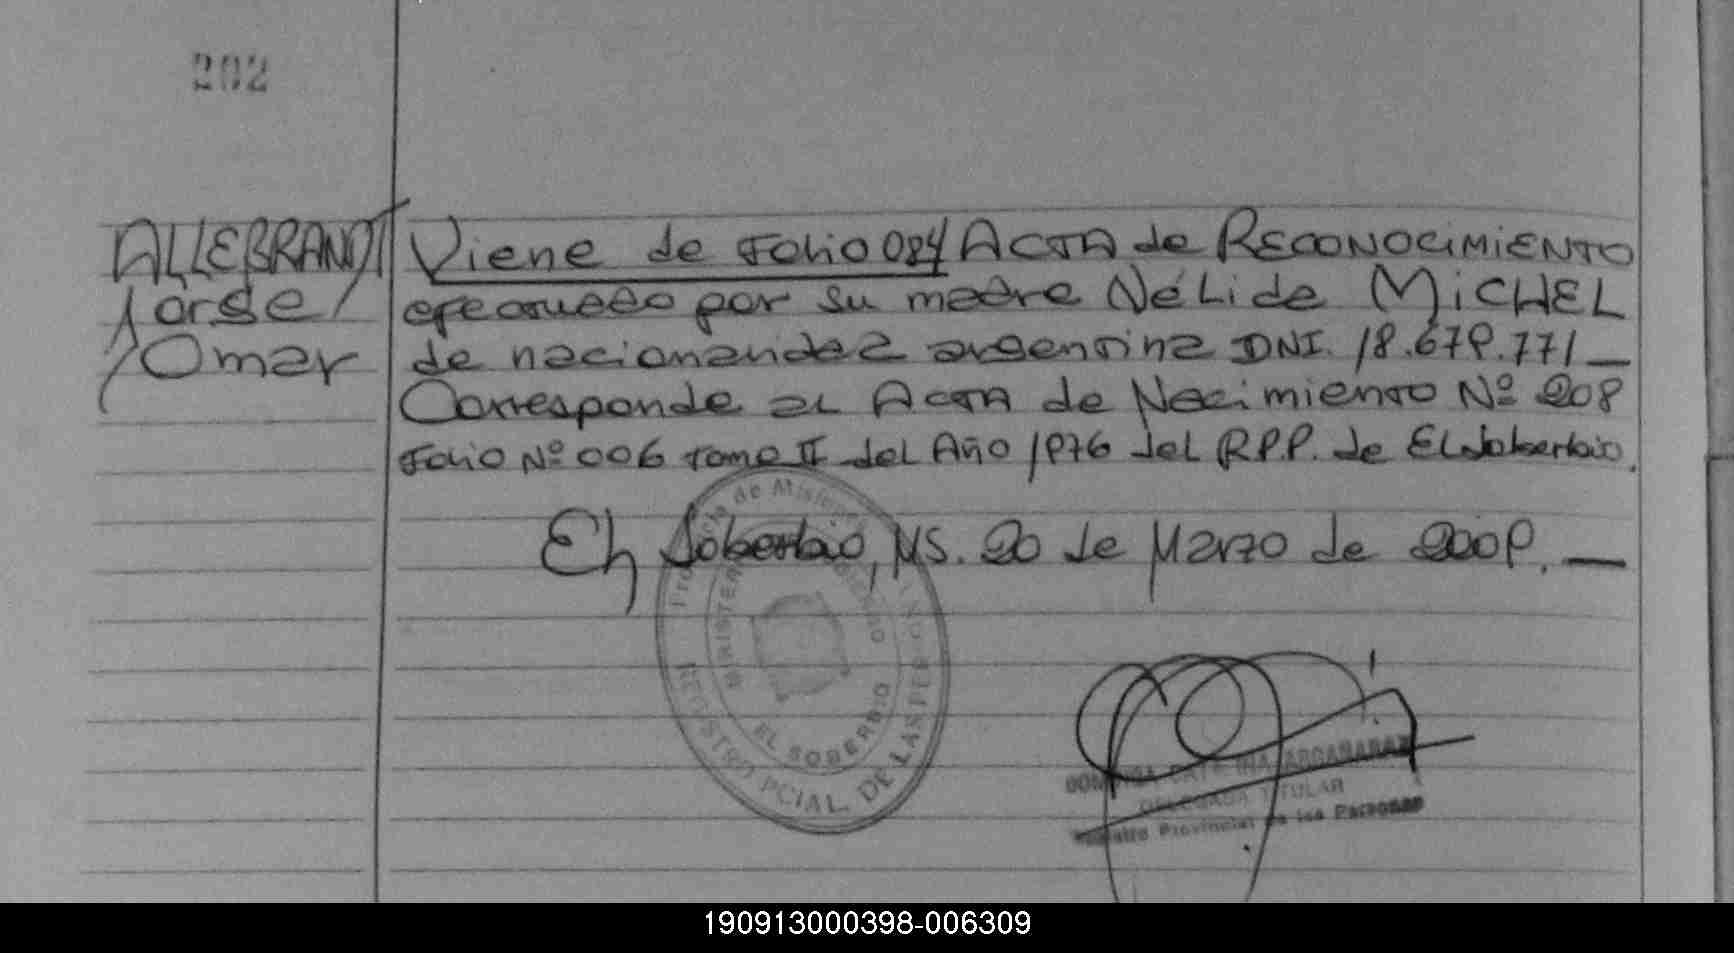 202
ALLEBRANDT
Jorge
Omar
Viene de Folio 084 ACTA de RECONOCIMIENTO
efectuado por su madre Nélida MICHEL
de nacionalidad argentina DNI. 18.679.771_
Corresponde al Acta de Nacimiento Nº 208
Folio Nº 006 Tomo II del Año 1976 del R.P.P. de El Soberbio.
El Soberbio, MS. 20 de Marzo de 2009._
Provincia de Misiones
MINISTERIO
EL SOBERBIO
REGISTRO PCIAL. DE LAS PER
DELEGADA TITULAR
Provincial de las Personas
190913000398-006309